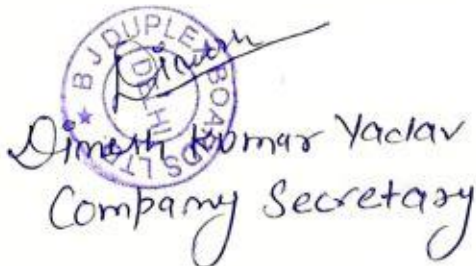 B J DUPLEX BOARDS LTD
DELHI
Dinesh
Dinesh Kumar Yadav
Company Secretary